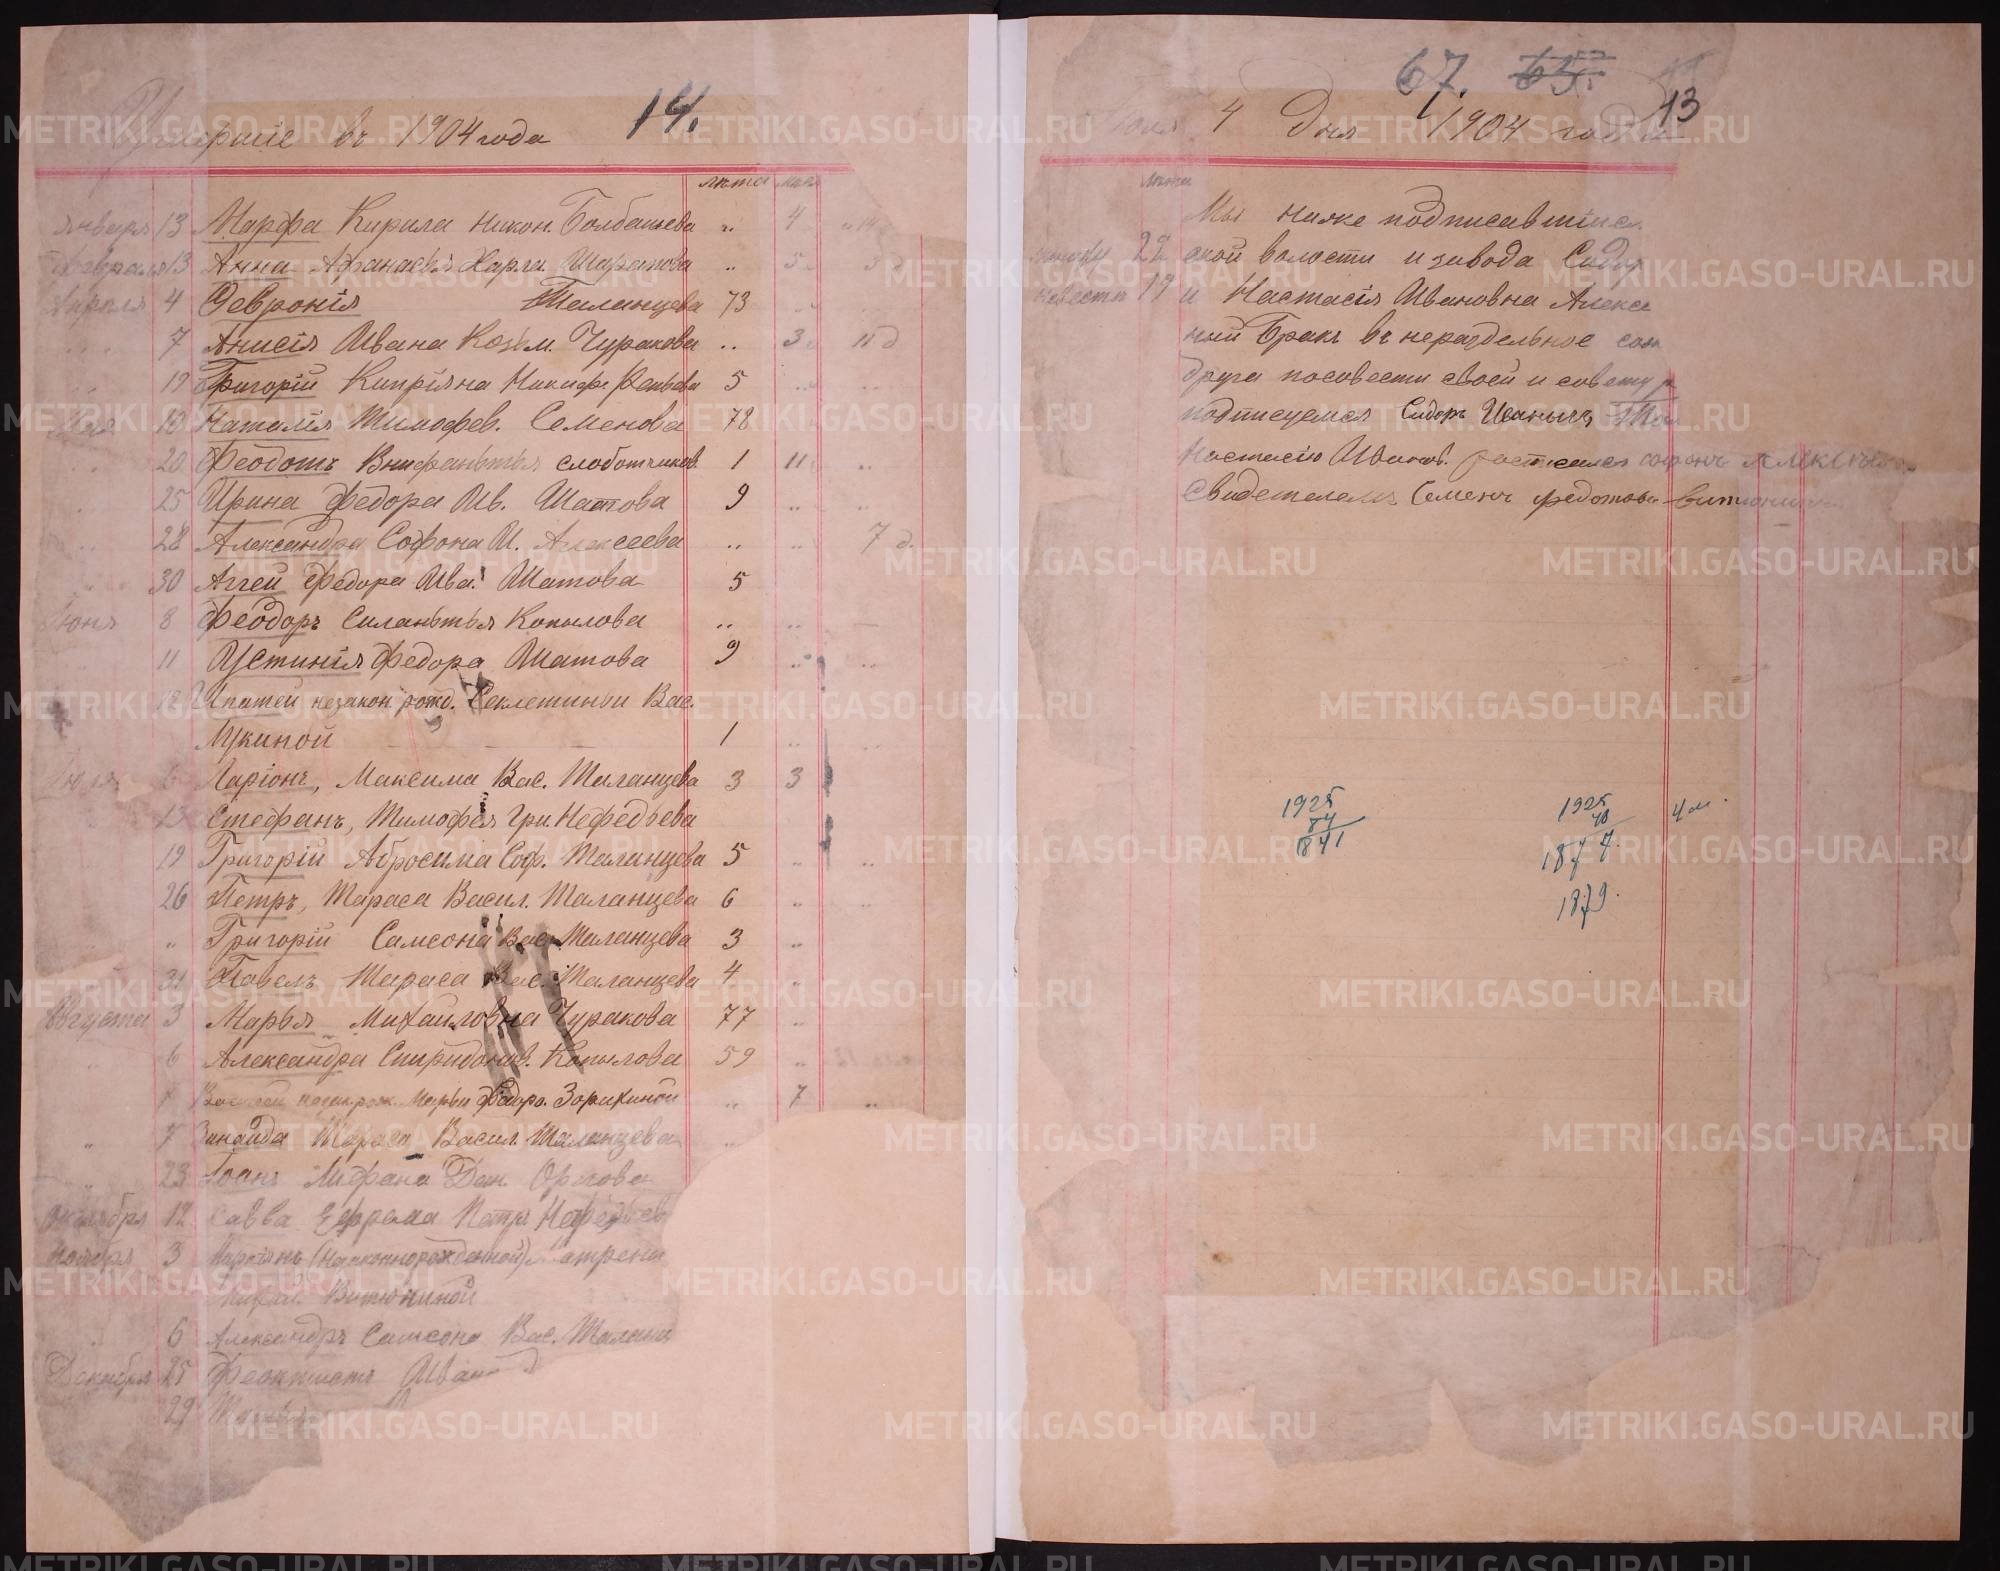 Умершіе въ 1904 года 14.
лѣта мѣс
Января 13 Марфа Кирила Никон. Болбашева .. 4
Февраля 13 Анна Афанасья Харла. Шарапова .. 5
Апреля 4 Февронія Таланцева 73
7 Анисія Ивана Козьм. Чуракова .. 3 11 д
19 Григорій Кипріяна Никифо. 5
Мая 10 Наталія Тимофев. Семенова 78
20 Феодотъ Внифантья Слоботчиков. 1 11
25 Ирина Федора Ив. Шатова 9
28 Александра Софона И. Алексеева .. .. 7 д.
30 Аггей Федора Ива. Шатова 5
Июня 8 Феодоръ Силантья Копылова
11 Устинія Федора Шатова 9
12 Ипатей незакон рожд. Секлетиньи Вас.
Лукиной 1
Июля 6 Ларіонъ, Максима Вас. Таланцева 3 3
13 Стефанъ, Тимофея Гри. Нефедьева
19 Григорій Абросима Соф. Таланцева 5
26 Петръ, Тараса Васил. Таланцева 6
„ Григорій Самсона Вас. Таланцева 3
31 Павелъ Тараса Вас. Таланцева 4
Августа 3 Марья Михайловна Чуракова 77
6 Александра Спиридонов. Копылова 59
7 Марьи Федоро. Зорихиной .. 7
„ 7 Зинаида Тараса Васил. Таланцева
23 Іоанъ Дан. Орлова
Октября 12 Савва Ефрема Петр. Нефедьев
Ноября 3 (Незаконнорожденной)
Витюниной
6 Александръ Самсона Вас. Таланц
Декабря 25 Феоктистъ Иван
29
67. 65. 13
Июля 4 Дня 1904 года
лѣта
Мы ниже подписавшіис
жениху 22 ской волости и завода Сидор
невесте 19 и Настасія Ивановна Алекс
ный Бракъ въ нераздельное сож
друга посовести своей и совету р
подписуемся Сидоръ Иванычъ Та
Настасію Иванов. росписался софонъ Алексѣ
Свидетелемъ Семенъ федотовъ витюнин
1925 1925 4 м.
84 48
1841 1877.
1879.